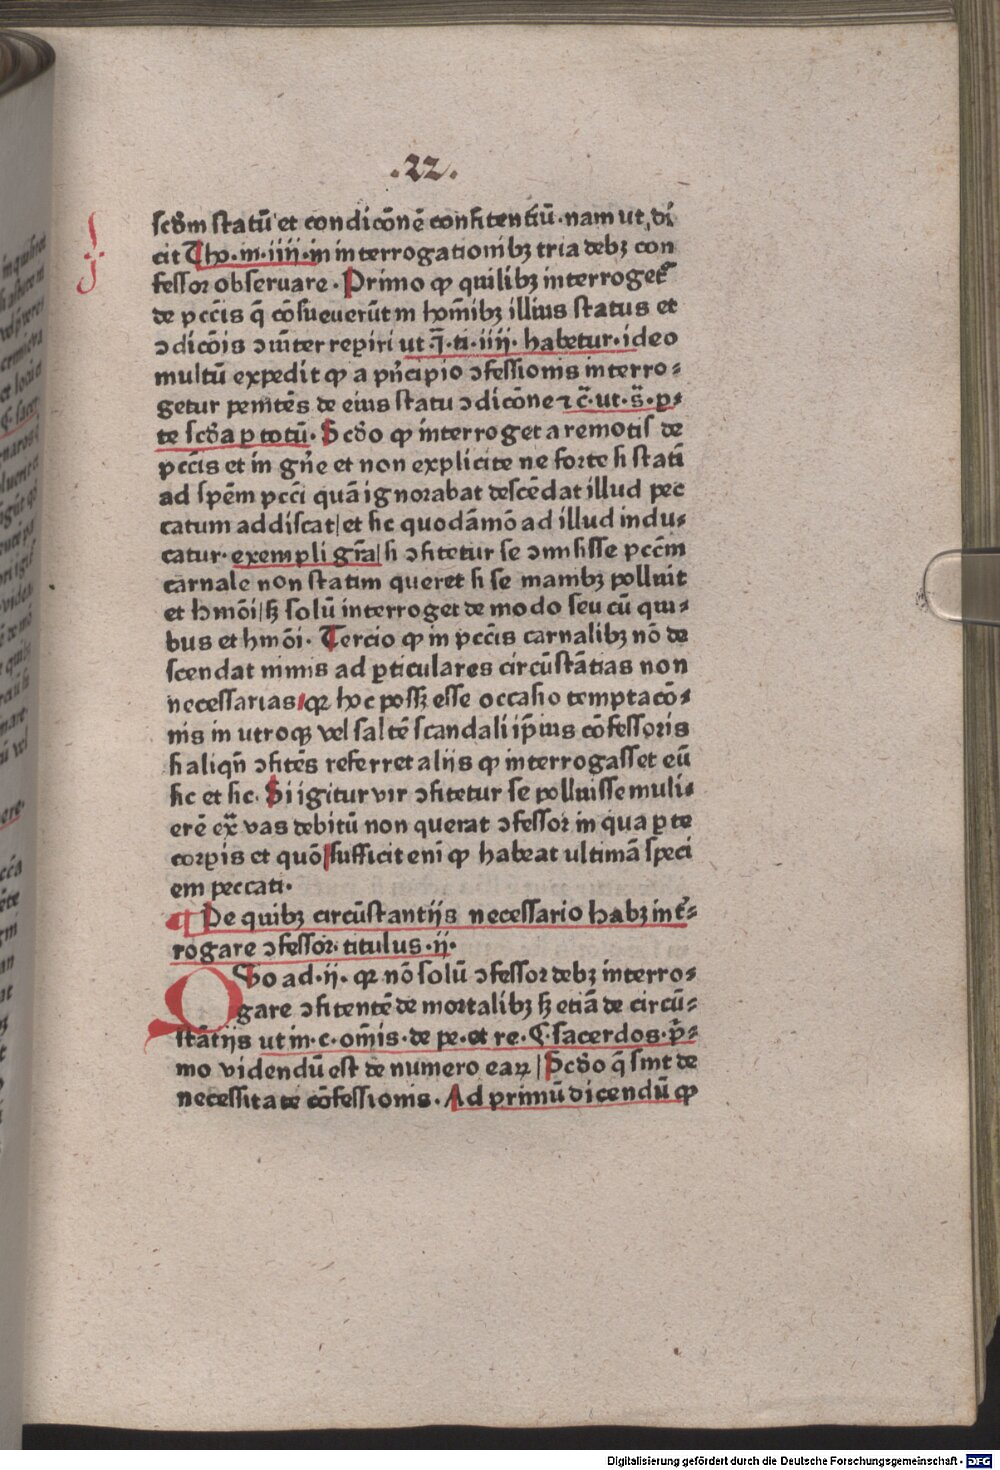 .22.
scḋm statū et condicōnē confitentiū·nam ut di
cit Tho·in·iiij·in interrogationibꝫ tria debꝫ con
fessor obseruare·Primo ꝙ quilibꝫ interroget᷒
de pcc̄is q̄ cōsueuerūt in hoīmibꝫ illius status et
ↄdicōis ↄiūter reperiri ut q̄·ti·iiij·habetur·ideo
multū expedit ꝙ a prīcipio ↄfessionis interro⸗
getur penitēs de eius statu ↄdicōne ⁊ c̄·ut·s̄·p⸗
te scḋa p totū·Scḋo ꝙ interroget a remotis de
pcc̄is et in gn̄e et non explicite ne forte si statī
ad spēm pcc̄i quā ignorabat descēdat illud pec
catum addiscat|et sic quodāmō ad illud indu⸗
catur·exempli gr̄a|si ↄfitetur se ↄmisisse pcc̄m
carnale non statim queret si se manibꝫ polluit
et hmōi|sꝫ solū interroget de modo seu cū qui⸗
bus et hmōi·Tercio ꝙ in pcc̄is carnalibꝫ nō de
scendat nimis ad ꝑticulares circūstātias non
necessarias|qꝛ hoc possꝫ esse occasio temptacō⸗
nis in utroqꝫ vel saltē scandali ip̄ius cōfessoris
si aliqn̄ ↄfitēs referret alijs ꝙ interrogasset eū
sic et sic·Si igitur vir ↄfitetur se polluisse muli⸗
erē ex̄ vas debitū non querat ↄfessor in qua ꝑte
corꝑis et quō|sufficit enī ꝙ habeat ultimā speci
em peccati·
¶ De quibꝫ circūstantijs necessario habꝫ int̄⸗
rogare ↄfessor·titulus·ij·
Quo ad·ij·qꝛ nō solū ↄfessor debꝫ interro⸗
gare ↄfitentē de mortalibꝫ sꝫ etiā de circū⸗
stātijs ut in·c·om̄is·de pe·et re·¶·sacerdos·pr̄⸗
mo videndū est de numero eaꝝ|Scḋo q̄ sint de
necessitate cōfessionis·Ad primū dicendū ꝙ
Digitalisierung gefördert durch die Deutsche Forschungsgemeinschaft - DFG